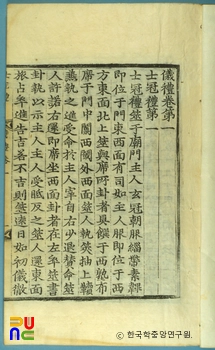 儀禮卷第一
士冠禮第一
士冠禮筮于廟門主人玄冠朝服緇帶素韠
即位于門東西面有司如主人服即位于西
方東面北上筮與席所卦者具饌于西塾布
席于門中闑西閾外西面筮人執筴抽上韇
兼執之進受命於主人宰自右少退贊命筮
人許諾右還即席坐西面卦者在左卒筮書
卦執以示主人主人受眡反之筮人還東面
旅占卒進告吉若不吉則筮遠日如初儀徹
(c) 한국학중앙연구원.